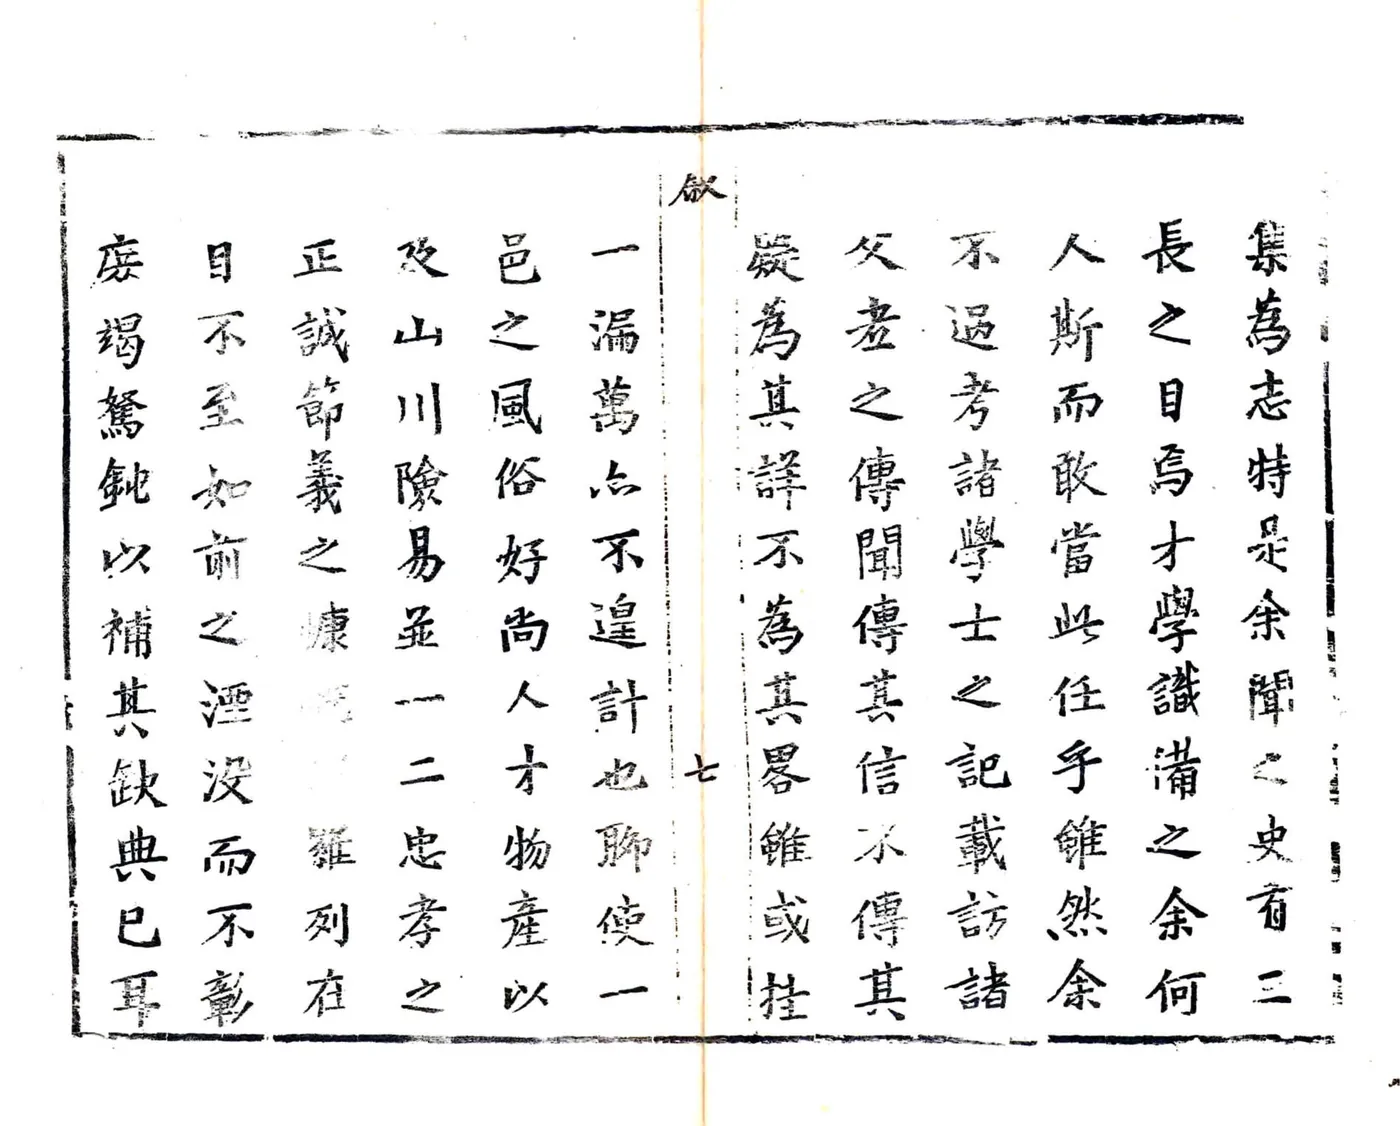 集為志特是余聞之史有三
長之目焉才學識備之余何
人斯而敢當此任乎雖然余
不過考諸學士之記載訪諸
父老之傳聞傳其信不傳其
疑為其詳不為其畧雖或挂
敘
七
一漏萬亦不遑計也聊使一
邑之風俗好尚人才物產以
及山川險易並一二忠孝之
正誠節義之慷 羅列在
目不至如前之湮没而不彰
庶竭駑鈍以補其缺典已耳